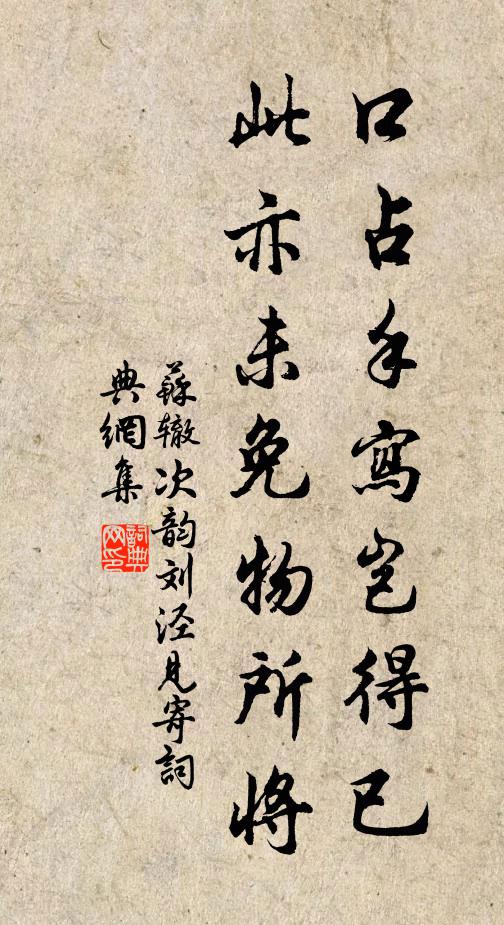 口占手寫岂得已
此亦未免物所將
蘇辙次韵刘泾見寄詞
典網集
詞典
网印